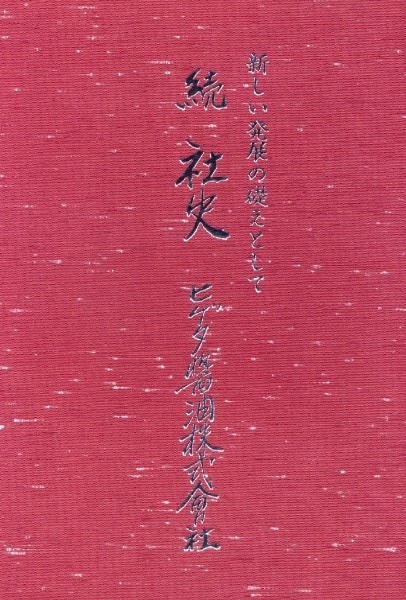 新しい発展の礎えとして
続 社史
ヒゲタ醤油株式會社